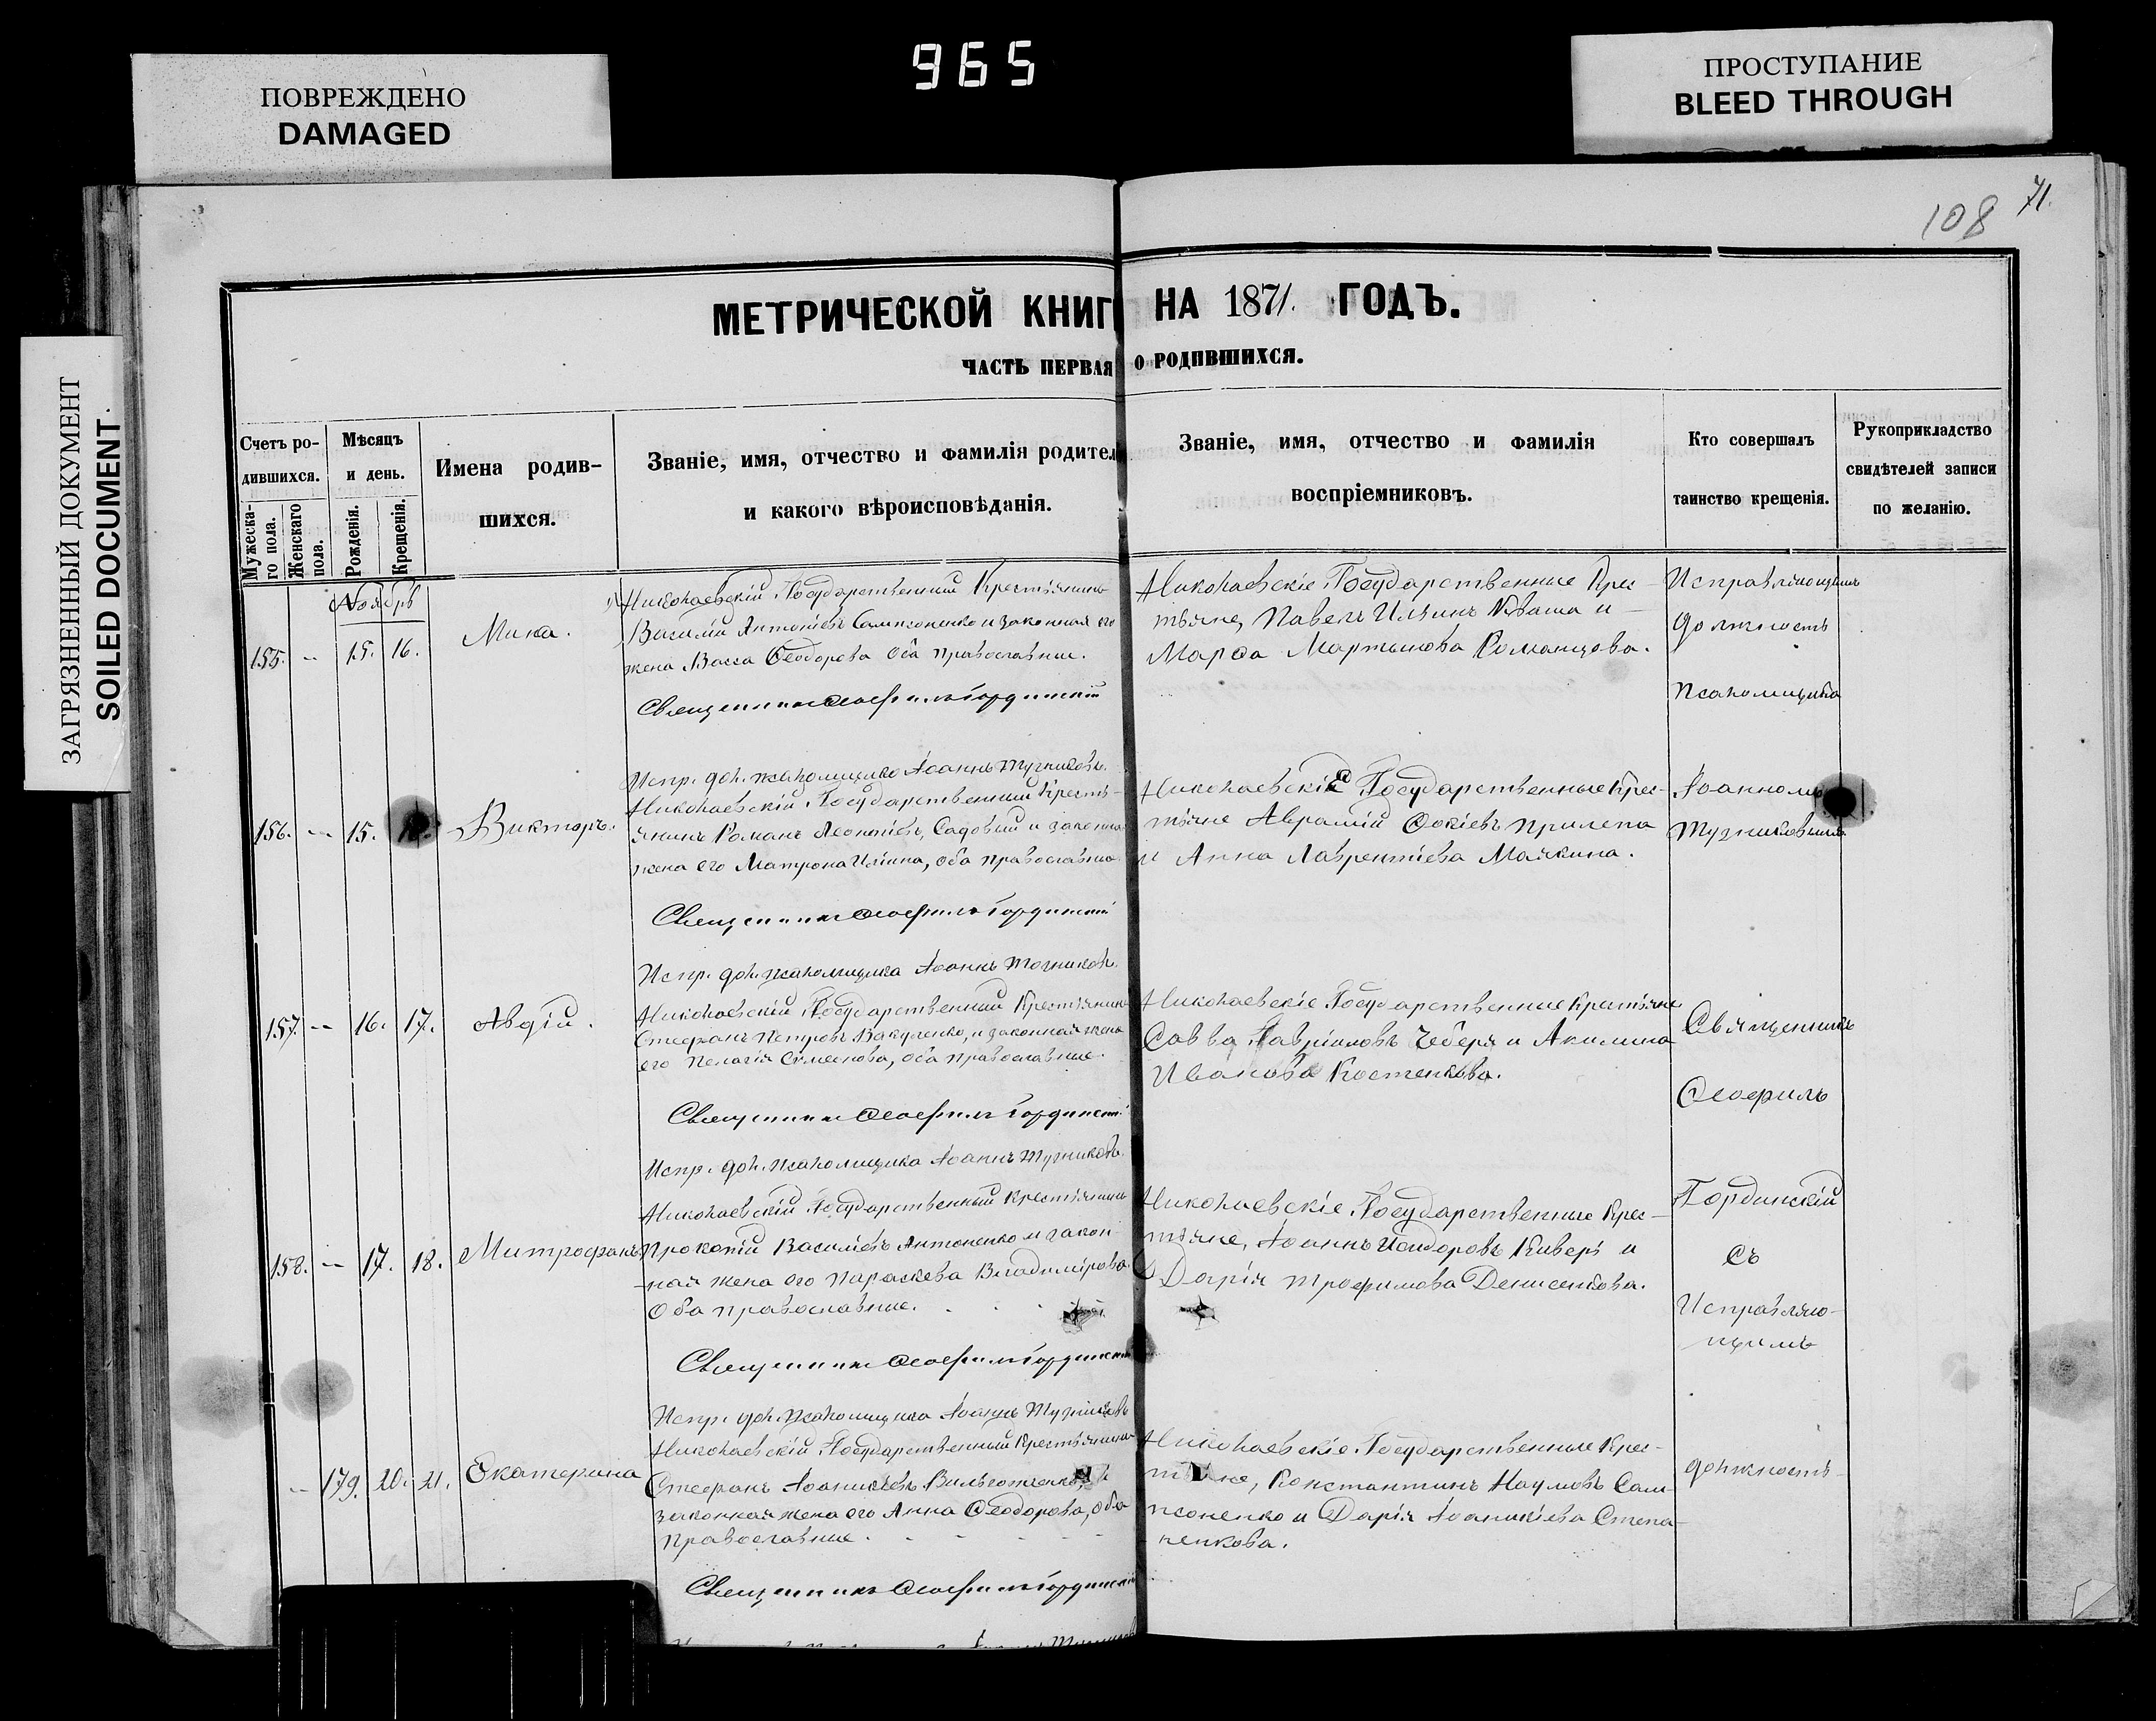 965
ПОВРЕЖДЕНО
DAMAGED
ПРОСТУПАНИЕ
BLEED THROUGH
ЗАГРЯЗНЕННЫЙ ДОКУМЕНТ
SOILED DOCUMENT.
108
71.
МЕТРИЧЕСКОЙ КНИГ НА 1871. ГОДЪ.
ЧАСТЬ ПЕРВАЯ О РОДИВШИХСЯ.
Счетъ ро-
дившихся.
Мужеска-
го пола.
Женскаго
пола.
Мѣсяцъ
и день.
Рожденія.
Крещенія.
Имена родив-
шихся.
Званіе, имя, отчество и фамилія родител
и какого вѣроисповѣданія.
Званіе, имя, отчество и фамилія
воспріемниковъ.
Кто совершалъ
таинство крещенія.
Рукоприкладство
свидѣтелей записи
по желанію.
Ноябрь
155. – 15. 16. Мина.
Николаевскій Государственный Крестьянинъ
Василій Антоніевъ Сампсоненко и законная его
жена Васса Ѳеодорова оба православные.
Священникъ Ѳеофилъ Гординскій
Николаевскіе Государственные Крес-
тьяне, Павелъ Ильинъ Кваша и
Марѳа Мартынова Романцова.
Исправляющимъ
должность
псаломщика
Испр. дол. псаломщика Іоаннъ Тучниковъ.
156. – 15. Викторъ.
Николаевскій Государственный Кресть-
янинъ Романъ Леонтіевъ Садовый и законна
жена его Матрона Ильина, оба православные
Священникъ Ѳеофилъ Гординскій
Николаевскіе Государственные Крес-
тьяне Аврамій Ѳокіевъ Прилепа
и Анна Лаврентіева Маякина.
Іоанномъ
Тучниковымъ.
Испр. дол. псаломщика Іоаннъ Тучниковъ.
157. – 16. 17. Авдій.
Николаевскій Государственный Крестьянинъ
Стефанъ Петровъ Вакуленко, и законная жена
его Пелагія Симеонова, оба православные.
Священникъ Ѳеофилъ Гординскій
Николаевскіе Государственные Крестьяне
Савва Гавріиловъ Чеберя и Акилина
Иванова Костенкова.
Священникъ
Ѳеофилъ
Испр. дол. псаломщика Іоаннъ Тучниковъ.
158. – 17. 18. Митрофанъ
Николаевскій Государственный Крестьянинъ
Прокопій Василіевъ Антоненко и закон-
ная жена его Параскева Владимірова
Оба православные.
Священникъ Ѳеофилъ Гординскій
Николаевскіе Государственные Крес-
тьяне, Іоаннъ Исидоровъ Киверь и
Дарія Трофимова Денисенкова.
Гординскій
съ
Исправляю-
щимъ
Испр. дол. псаломщика Іоаннъ Тучниковъ
– 179. 20. 21. Екатерина
Николаевскій Государственный Крестьянинъ
Стефанъ Іоанникіевъ
законная жена его Анна Ѳеодорова, оба
Православные.
Священникъ Ѳеофилъ Гординскій
Николаевскіе Государственные Крес-
тьяне, Константинъ Наумовъ Сам-
псоненко и Дарія Іоаникіева Степа-
ненкова.
должность